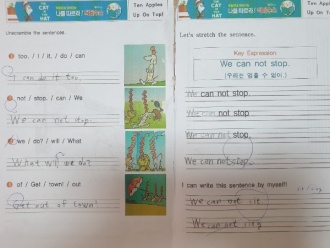 CAT
HAT
Ten Apples
Up On Top!
Unscramble the sentences.
too. / I / it. / do / can
I can do it too.
not / stop. / can / We
We can not stop.
we / do? / will / What
What will we do?
of / Get / town! / out
Get out of town!
CAT
HAT
Ten Apples
Up On Top!
Let's stretch the sentence.
Key Expression
We can not stop.
(우리는 멈출 수 없어.)
We can not stop.
We can not stop.
We can not stop.
We can not stop.
I can write this sentence by myself!
We can not sit
We can not